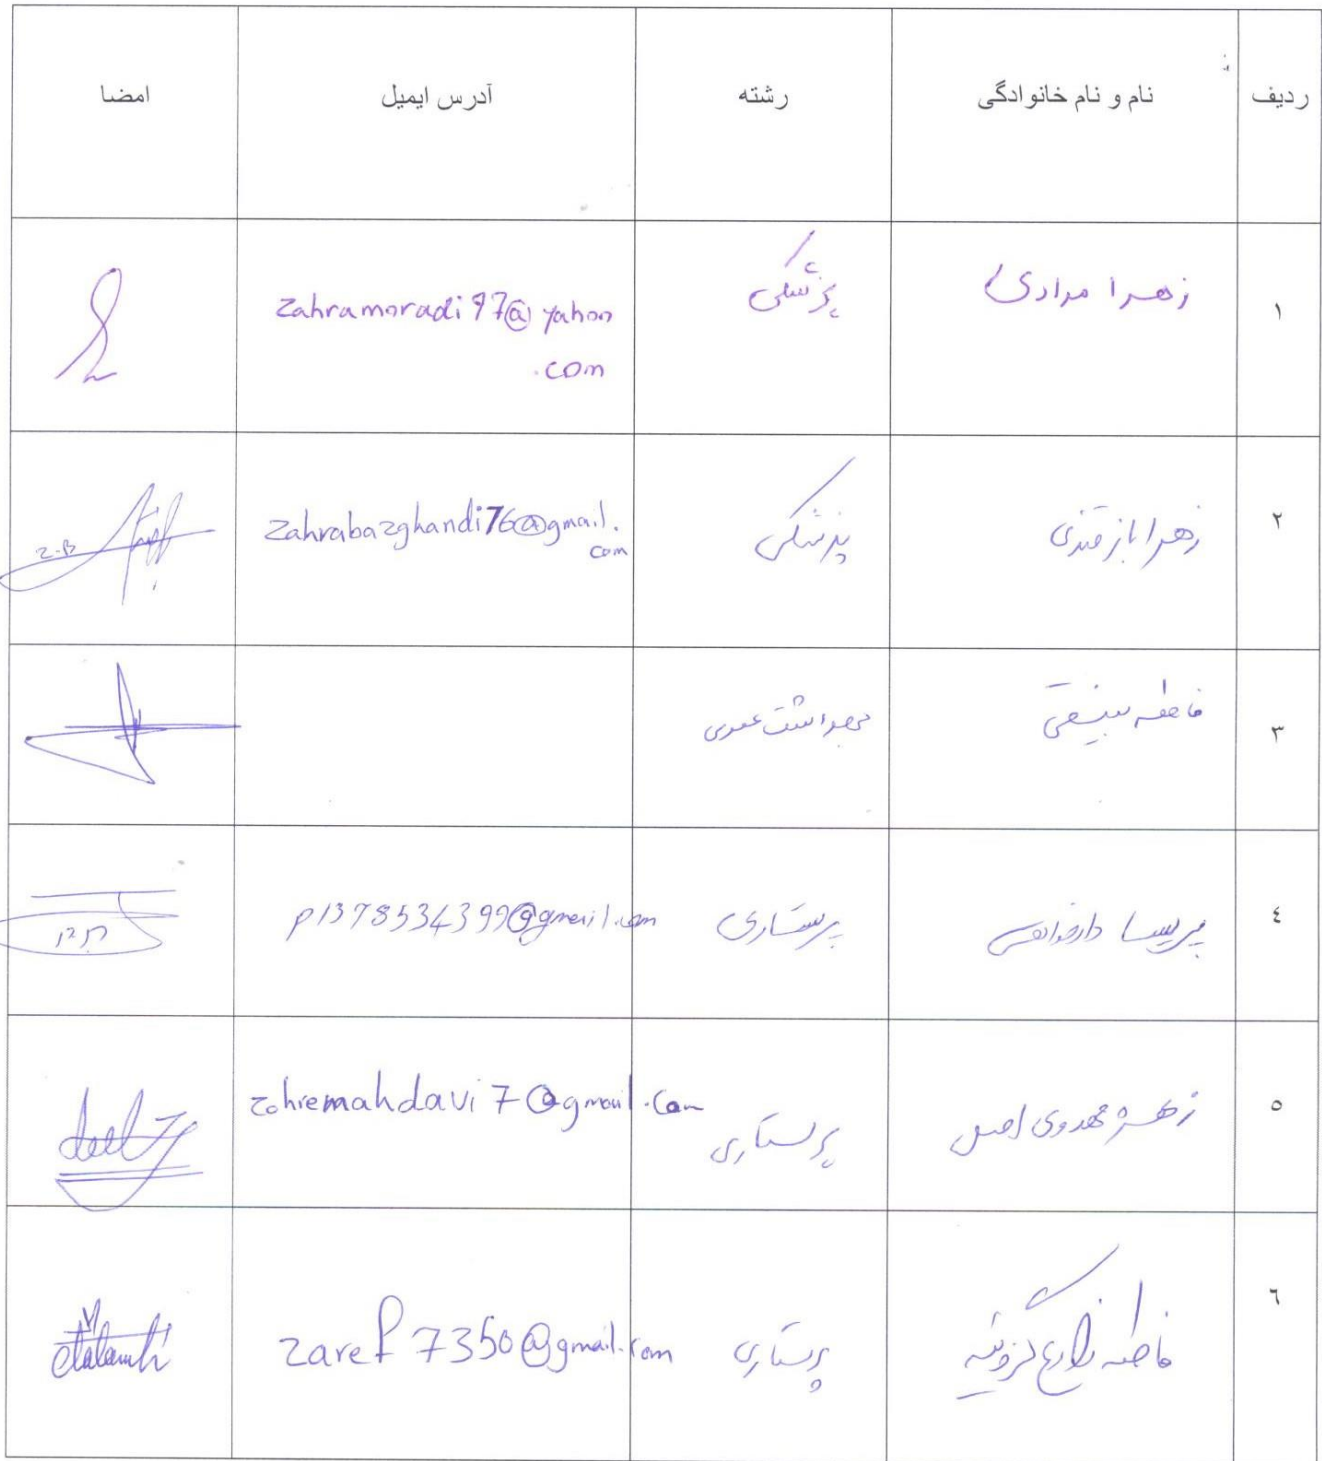 ردیف نام و نام خانوادگی رشته آدرس ایمیل امضا
۱ زهرا مرادی پزشکی zahramoradi97@yahoo
.com
۲ زهرا بازقندی پزشکی zahrabazghandi76@gmail.
com
Z.B
۳ فاطمه بهداشت عمومی
٤ پریسا پرستاری p1378534399@gmail.com
٥ زهره مهدوی اصل پرستاری zohremahdavi7@gmail.com
٦ فاطمه زارع پرستاری zaref7350@gmail.com